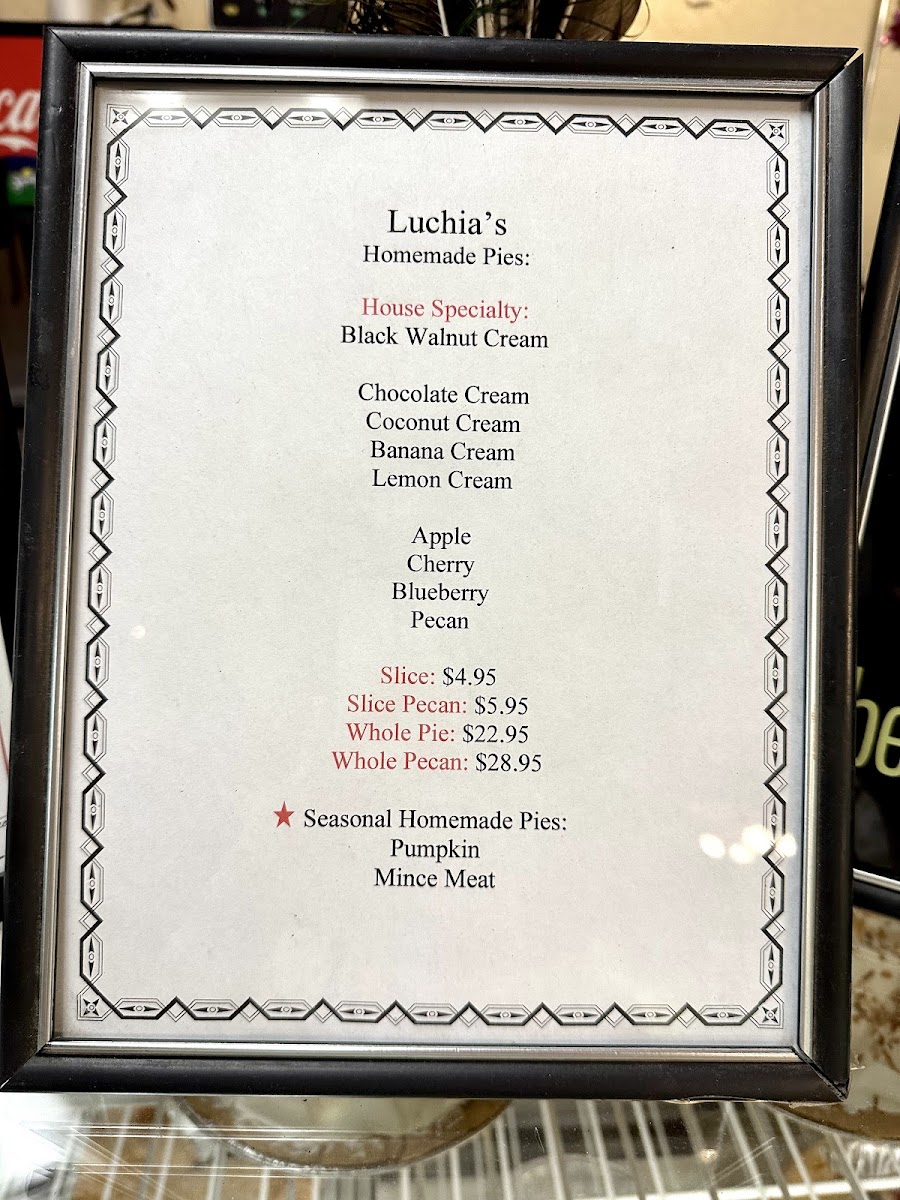 Luchia's
Homemade Pies:
House Specialty:
Black Walnut Cream
Chocolate Cream
Coconut Cream
Banana Cream
Lemon Cream
Apple
Cherry
Blueberry
Pecan
Slice: $4.95
Slice Pecan: $5.95
Whole Pie: $22.95
Whole Pecan: $28.95
★ Seasonal Homemade Pies:
Pumpkin
Mince Meat